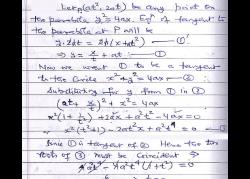 Let P(at², 2at) be any point on
the parabola y² = 4ax. Eqⁿ of tangent to
the parabola at P will be
y·2at = 2a(x + at²) — ①
⇒ y = x/t + at — ①
Now we want ① to be a tangent
to the circle x² + y² = 4ax — ②
Substituting for y from ① in ②
(at + x/t)² + x² = 4ax
x²(1 + 1/t²) + 2ax + a²t² − 4ax = 0
or x²(t²+1) − 2at²x + a²t⁴ = 0 — ③
① is a tangent of ② Hence the two
roots of ③ must be coincident